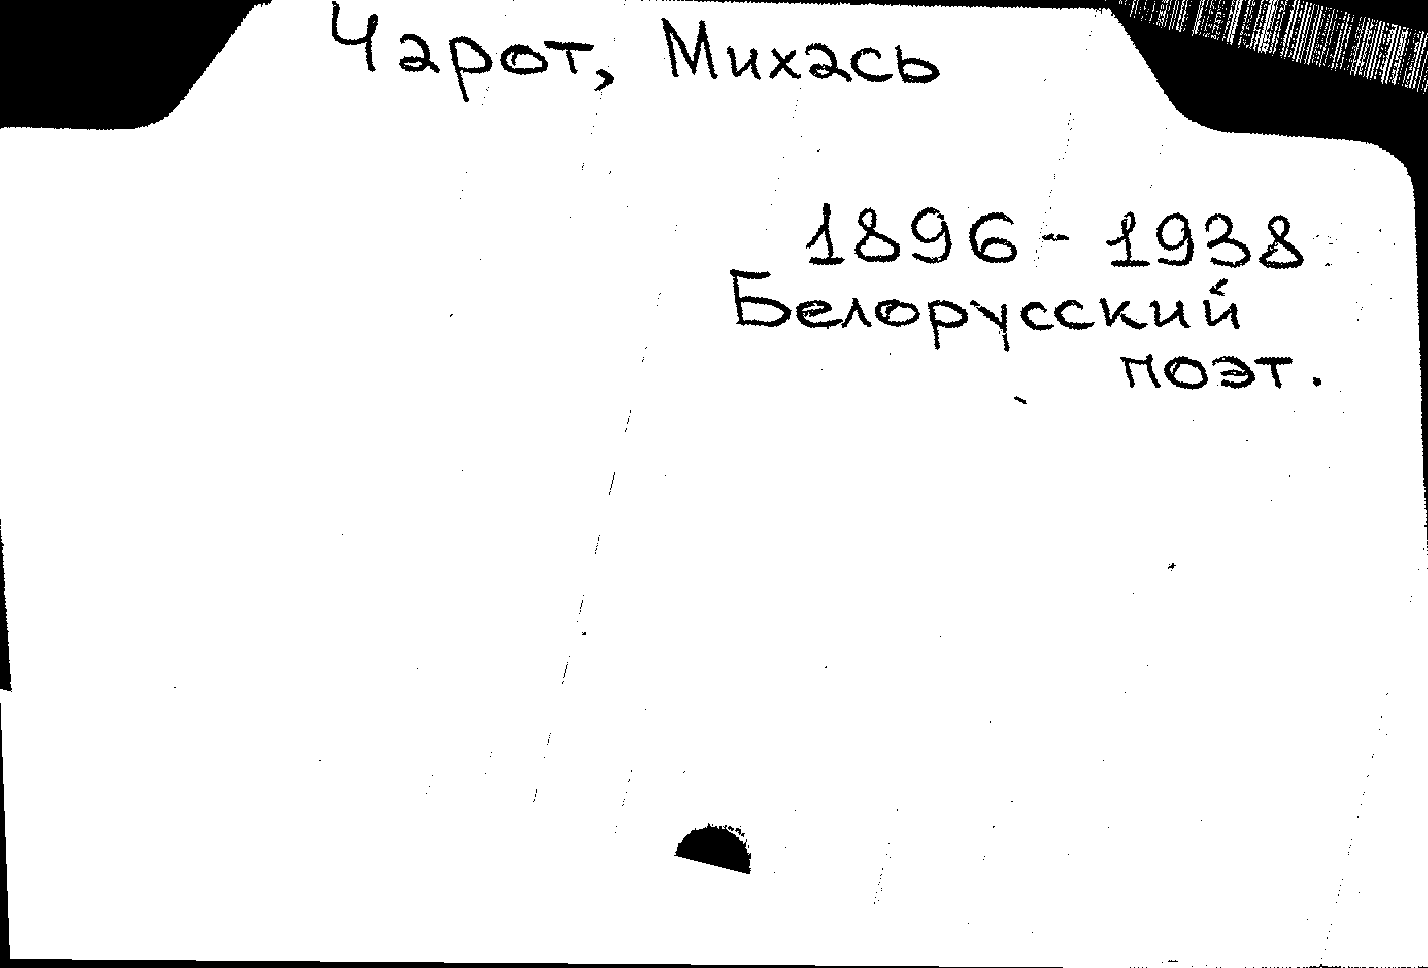 Чарот, Михась
1896-1938
Белорусский
поэт.